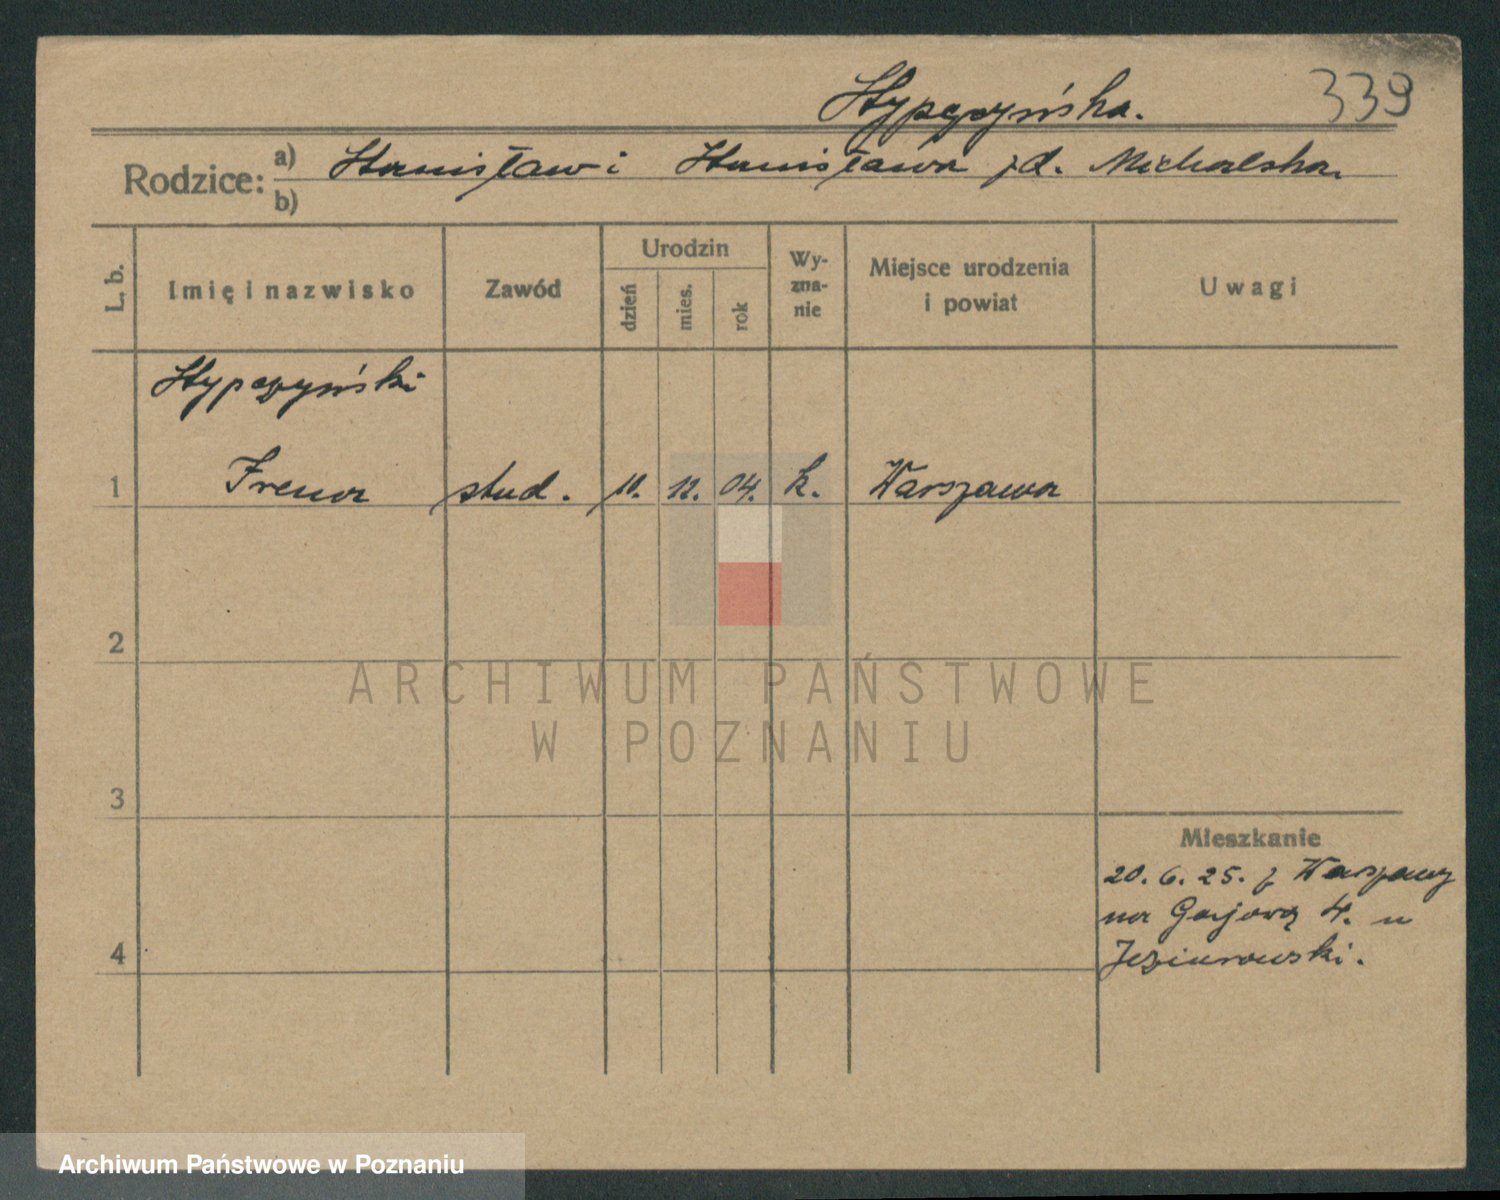 Stypczyńska.
339
Rodzice: a) Stanisław i Stanisława zd. Michalska.
b)
L. b.
Imię i nazwisko
Zawód
Urodzin
dzień
mies.
rok
Wy-
zna-
nie
Miejsce urodzenia
i powiat
Uwagi
Stypczyński
1 Irena stud. 10. 12. 04. k. Warszawa
2
3
4
Mieszkanie
20. 6. 25. z Warszawy
na Gajową 4. u
ARCHIWUM PAŃSTWOWE
W POZNANIU
Archiwum Państwowe w Poznaniu